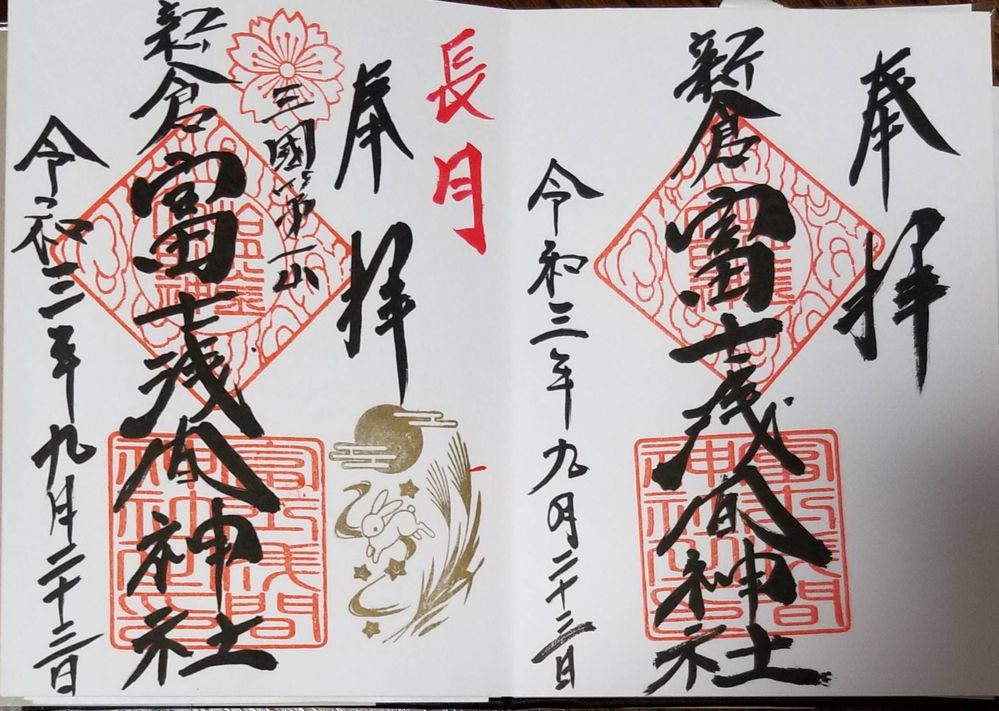 奉拝
新倉富士浅間神社
令和三年九月二十三日
長月
奉拝
三國第一山
新倉富士浅間神社
令和三年九月二十三日
富士浅間
神社之印
富士浅間
神社之印